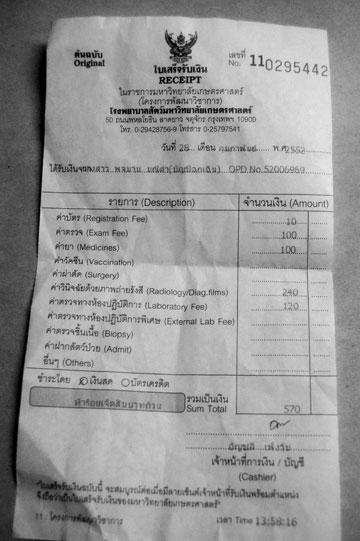 ต้นฉบับ
Original
เลขที่
No. 110295442
ใบเสร็จรับเงิน
RECEIPT
ในราชการมหาวิทยาลัยเกษตรศาสตร์
(โครงการพัฒนาวิชาการ)
โรงพยาบาลสัตว์มหาวิทยาลัยเกษตรศาสตร์
50 ถนนพหลโยธิน ลาดยาว จตุจักร กรุงเทพฯ 10900
โทร. 0-29428756-9 โทรสาร 0-25797541
วันที่ 28 เดือน กุมภาพันธ์ พ.ศ. 2552
ได้รับเงินจาก OPD No. 52006969
รายการ (Description) จำนวนเงิน (Amount)
ค่าบัตร (Registration Fee) 10
ค่าตรวจ (Exam Fee) 100
ค่ายา (Medicines) 100
ค่าวัคซีน (Vaccination)
ค่าผ่าตัด (Surgery)
ค่าวินิจฉัยด้วยภาพถ่ายรังสี (Radiology/Diag.films) 240
ค่าตรวจทางห้องปฏิบัติการ (Laboratory Fee) 120
ค่าตรวจทางห้องปฏิบัติการพิเศษ (External Lab Fee)
ค่าตรวจชิ้นเนื้อ (Biopsy)
ค่าฝากสัตว์ป่วย (Admit)
อื่นๆ (Others)
ชำระโดย เงินสด บัตรเครดิต
ห้าร้อยเจ็ดสิบบาทถ้วน
รวมเป็นเงิน
Sum Total 570
เจ้าหน้าที่การเงิน / บัญชี
(Cashier)
"ใบเสร็จรับเงินฉบับนี้ จะสมบูรณ์ต่อเมื่อมีลายเซ็นต์เจ้าหน้าที่รับเงินพร้อมตำแหน่ง
จึงถือว่าเป็นใบเสร็จรับเงินของมหาวิทยาลัยเกษตรศาสตร์"
11 : โครงการพัฒนาวิชาการ เวลา Time 13:58:16